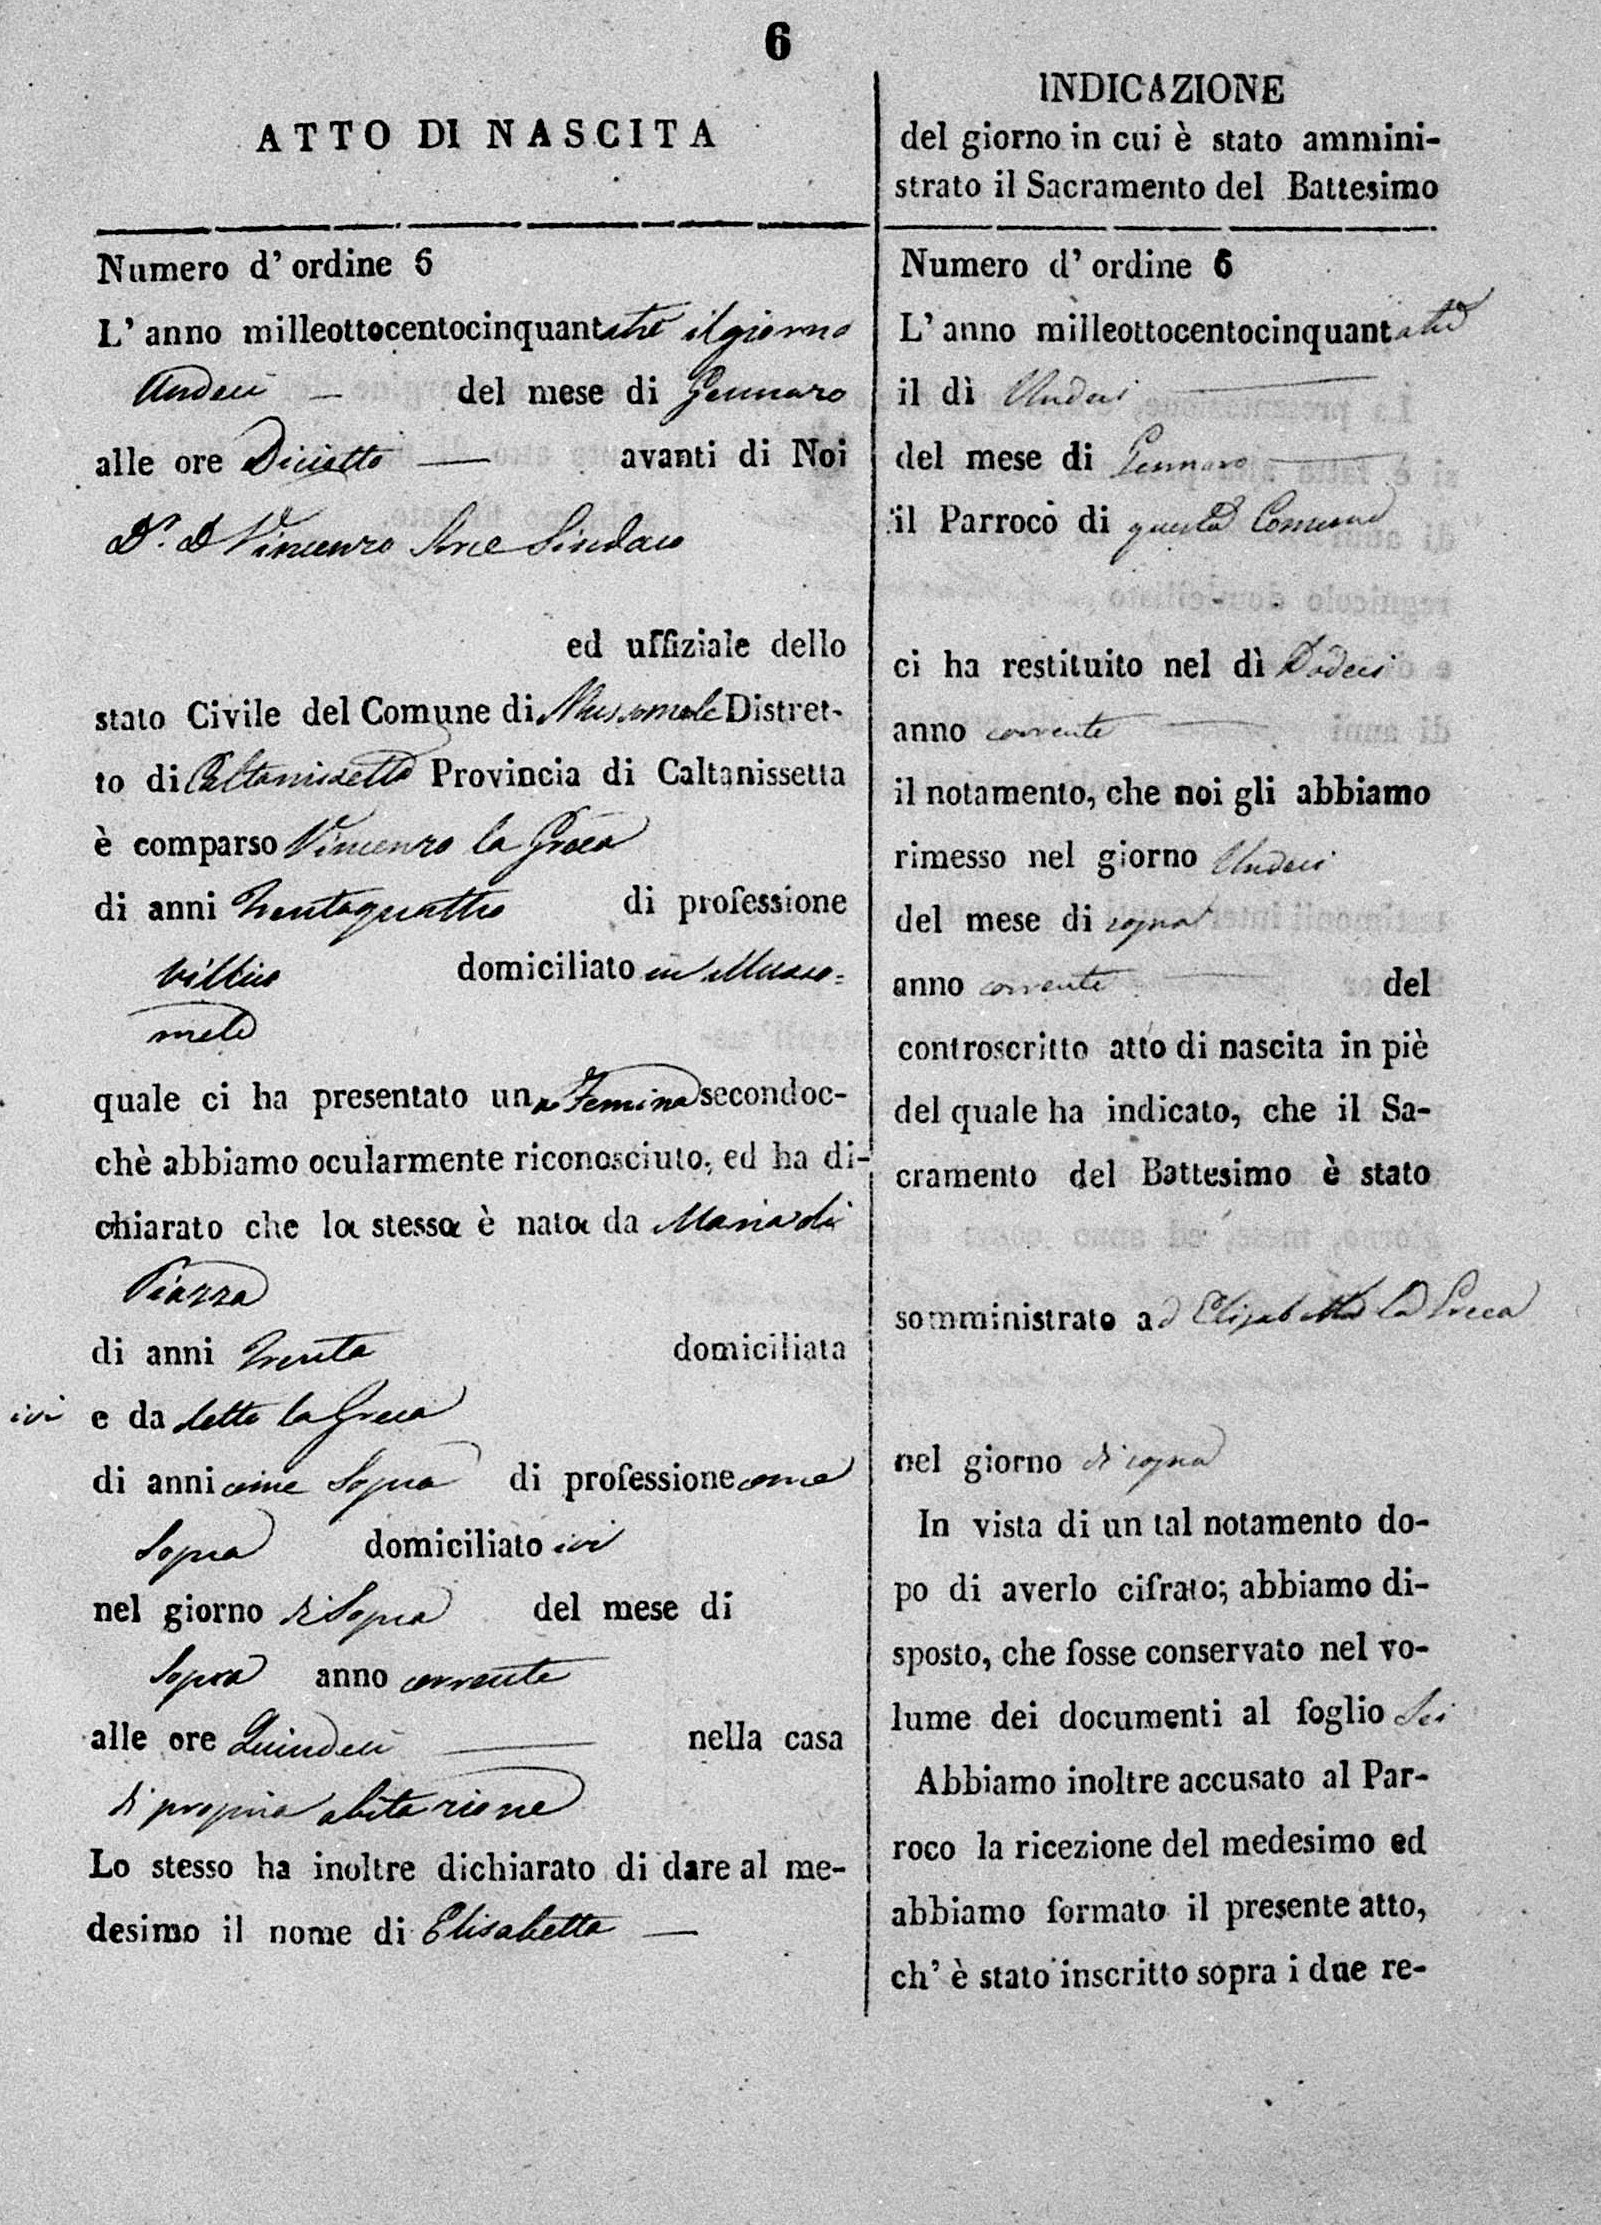 6
ATTO DI NASCITA
Numero d' ordine 6
L' anno milleottocentocinquantatre il giorno
Undeci — del mese di Gennaro
alle ore Diciotto — avanti di Noi
Dr. D Vincenzo Sindaco
ed uffiziale dello
stato Civile del Comune di Mussomele Distret-
to di Caltanissetta Provincia di Caltanissetta
è comparso Vincenzo la Greca
di anni Trentaquattro di professione
villico domiciliato in Musso=
mele
quale ci ha presentato una Femina secondoc-
chè abbiamo ocularmente riconosciuto, ed ha di-
chiarato che la stessa è nata da Maria di
Piazza
di anni Trenta domiciliata
ivi e da detto la Greca
di anni come Sopra di professione come
Sopra domiciliato ivi
nel giorno di Sopra del mese di
Sopra anno corrente
alle ore Quindeci — nella casa
di propria abitazione
Lo stesso ha inoltre dichiarato di dare al me-
desimo il nome di Elisabetta —
INDICAZIONE
del giorno in cui è stato ammini-
strato il Sacramento del Battesimo
Numero d' ordine 6
L' anno milleottocentocinquantatre
il dì Undeci —
del mese di Gennaro —
il Parroco di questa Comune
ci ha restituito nel dì Dodeci
anno corrente —
il notamento, che noi gli abbiamo
rimesso nel giorno Undeci
del mese di sopra
anno corrente — del
controscritto atto di nascita in piè
del quale ha indicato, che il Sa-
cramento del Battesimo è stato
somministrato ad Elisabetta la Greca
nel giorno di sopra
In vista di un tal notamento do-
po di averlo cifrato; abbiamo di-
sposto, che fosse conservato nel vo-
lume dei documenti al foglio Sei
Abbiamo inoltre accusato al Par-
roco la ricezione del medesimo ed
abbiamo formato il presente atto,
ch' è stato inscritto sopra i due re-